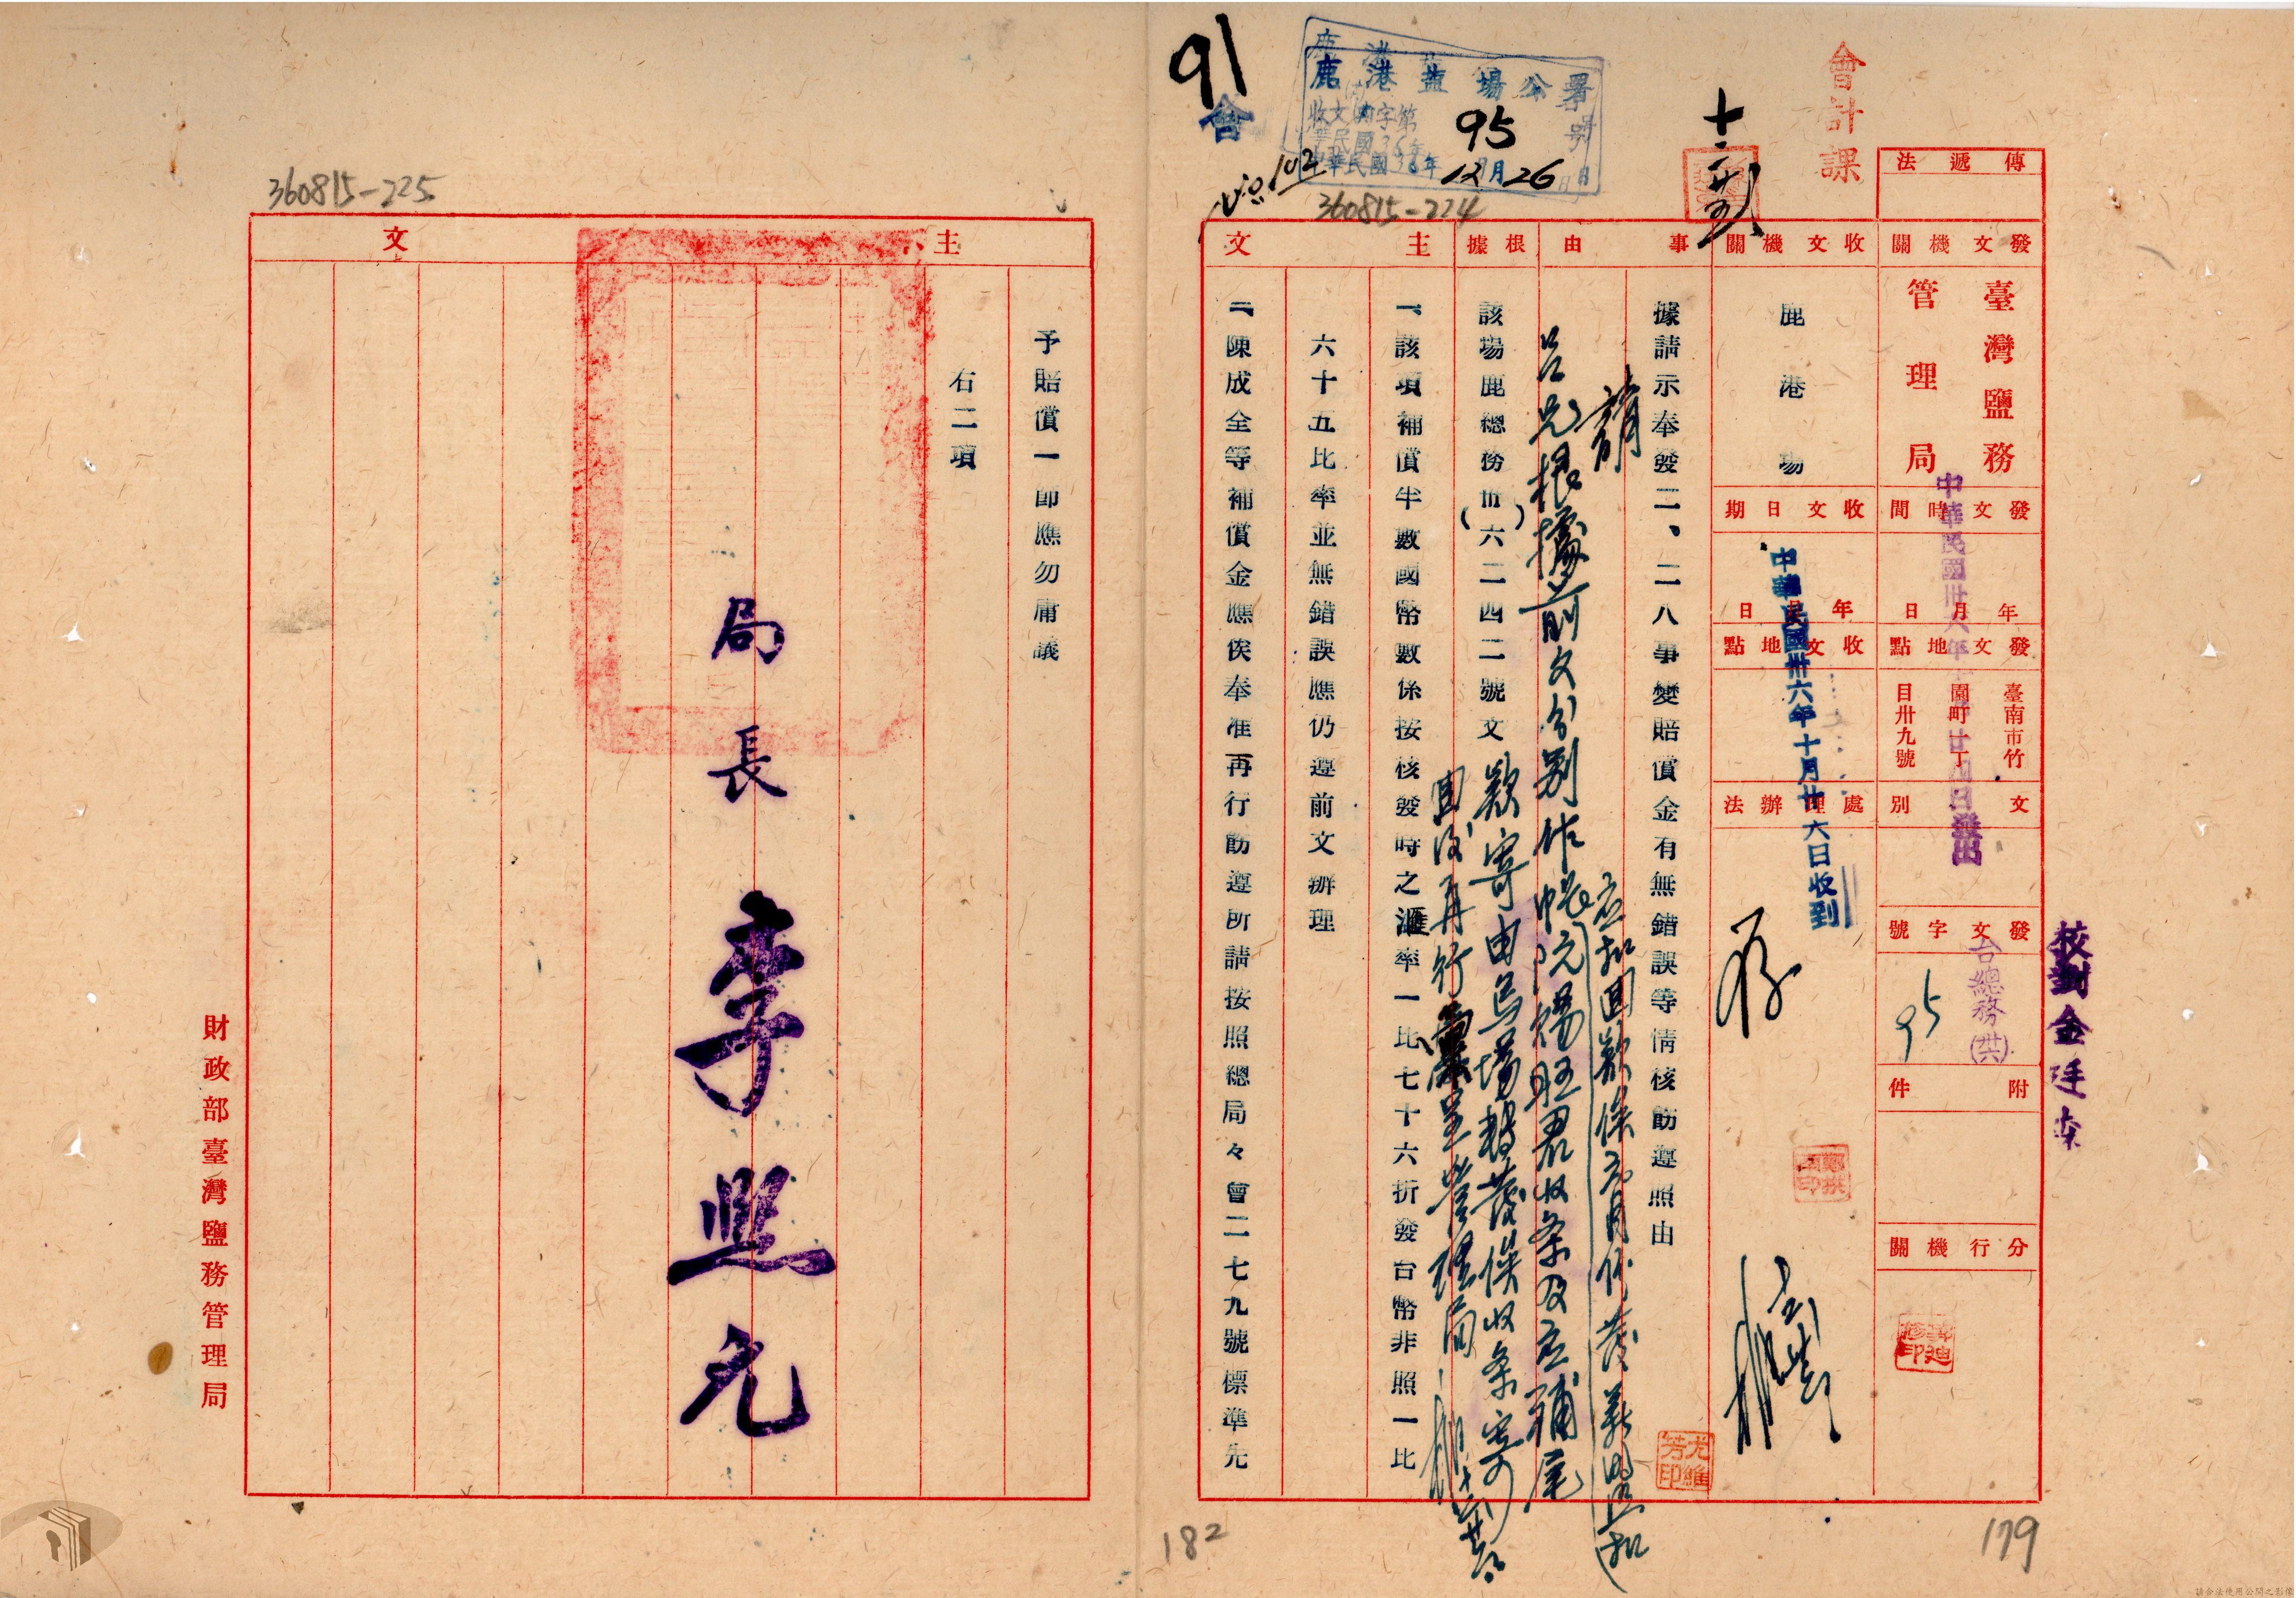 會計課
傳遞法
發文機關
臺灣鹽務
管理局
收文機關
鹿港場
發文時間
年月日
中華民國卅六年
收文日期
年月日
中華民國卅六年十月廿六日收到
發文地點
臺南市竹
園町一丁
目卅九號
收文地點
文別
處理辦法
存
發文字號
台總務(卅六)
95
附件
分行機關
校對
91
會
鹿港鹽場公署
收文
字第
95
號
中華民國36年12月26日
360815-224
事由
據請示奉發二、二八事變賠償金有無錯誤等情核飭遵照由
根據
該場鹿總務(卅六)二四二號文
主文
一、該項補償半數國幣數係按核發時之滙率一比七十六折發台幣非照一比
六十五比率並無錯誤應仍遵前文辦理
二、陳成全等補償金應俟奉准再行飭遵所請按照總局々會二七九號標準先
請
呂兄根據前文分別作帳
款寄由烏場轉發俟收条寄
回後再行
呈管理局
尤維芳印
179
182
360815-225
主文
予賠償一節應勿庸議
右二項
局長 李煕元
財政部臺灣鹽務管理局
請合法使用公開之影像